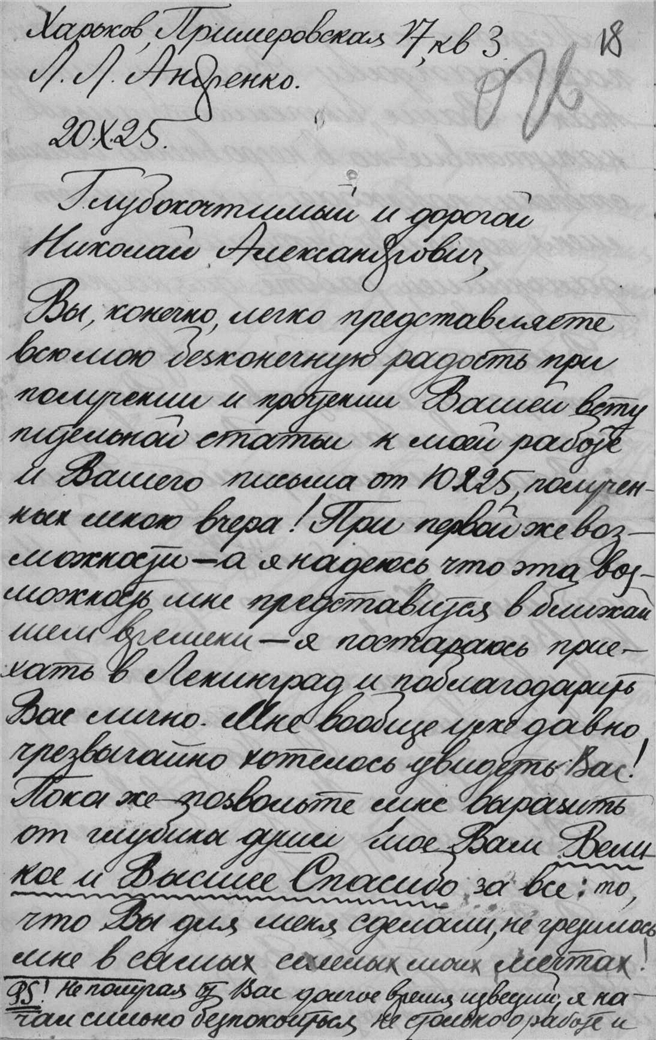 Харьков, Примеровская 17, кв 3. 18
Л. Л. Андренко.
20.X.25.
Глубокочтимый и дорогой
Николай Александрович,
Вы, конечно, легко представляете
всю мою безконечную радость при
получении и прочтении Вашей всту
пительной статьи к моей работе
и Вашего письма от 10X25, получен-
ных мною вчера! При первой же воз-
можности – а я надеюсь что эта воз-
можность мне представится в ближай
шем времени – я постараюсь прие-
хать в Ленинград и поблагодарить
Вас лично. Мне вообще уже давно
чрезвычайно хотелось увидеть Вас!
Пока же позвольте мне выразить
от глубины души мое Вам Вели
кое и Высшее Спасибо за все: то,
что Вы для меня сделали, не грезилось
мне в самых смелых моих мечтах!
PS! Не получая от Вас долгое время известий, я на-
чал сильно безпокоиться не столько о работе и